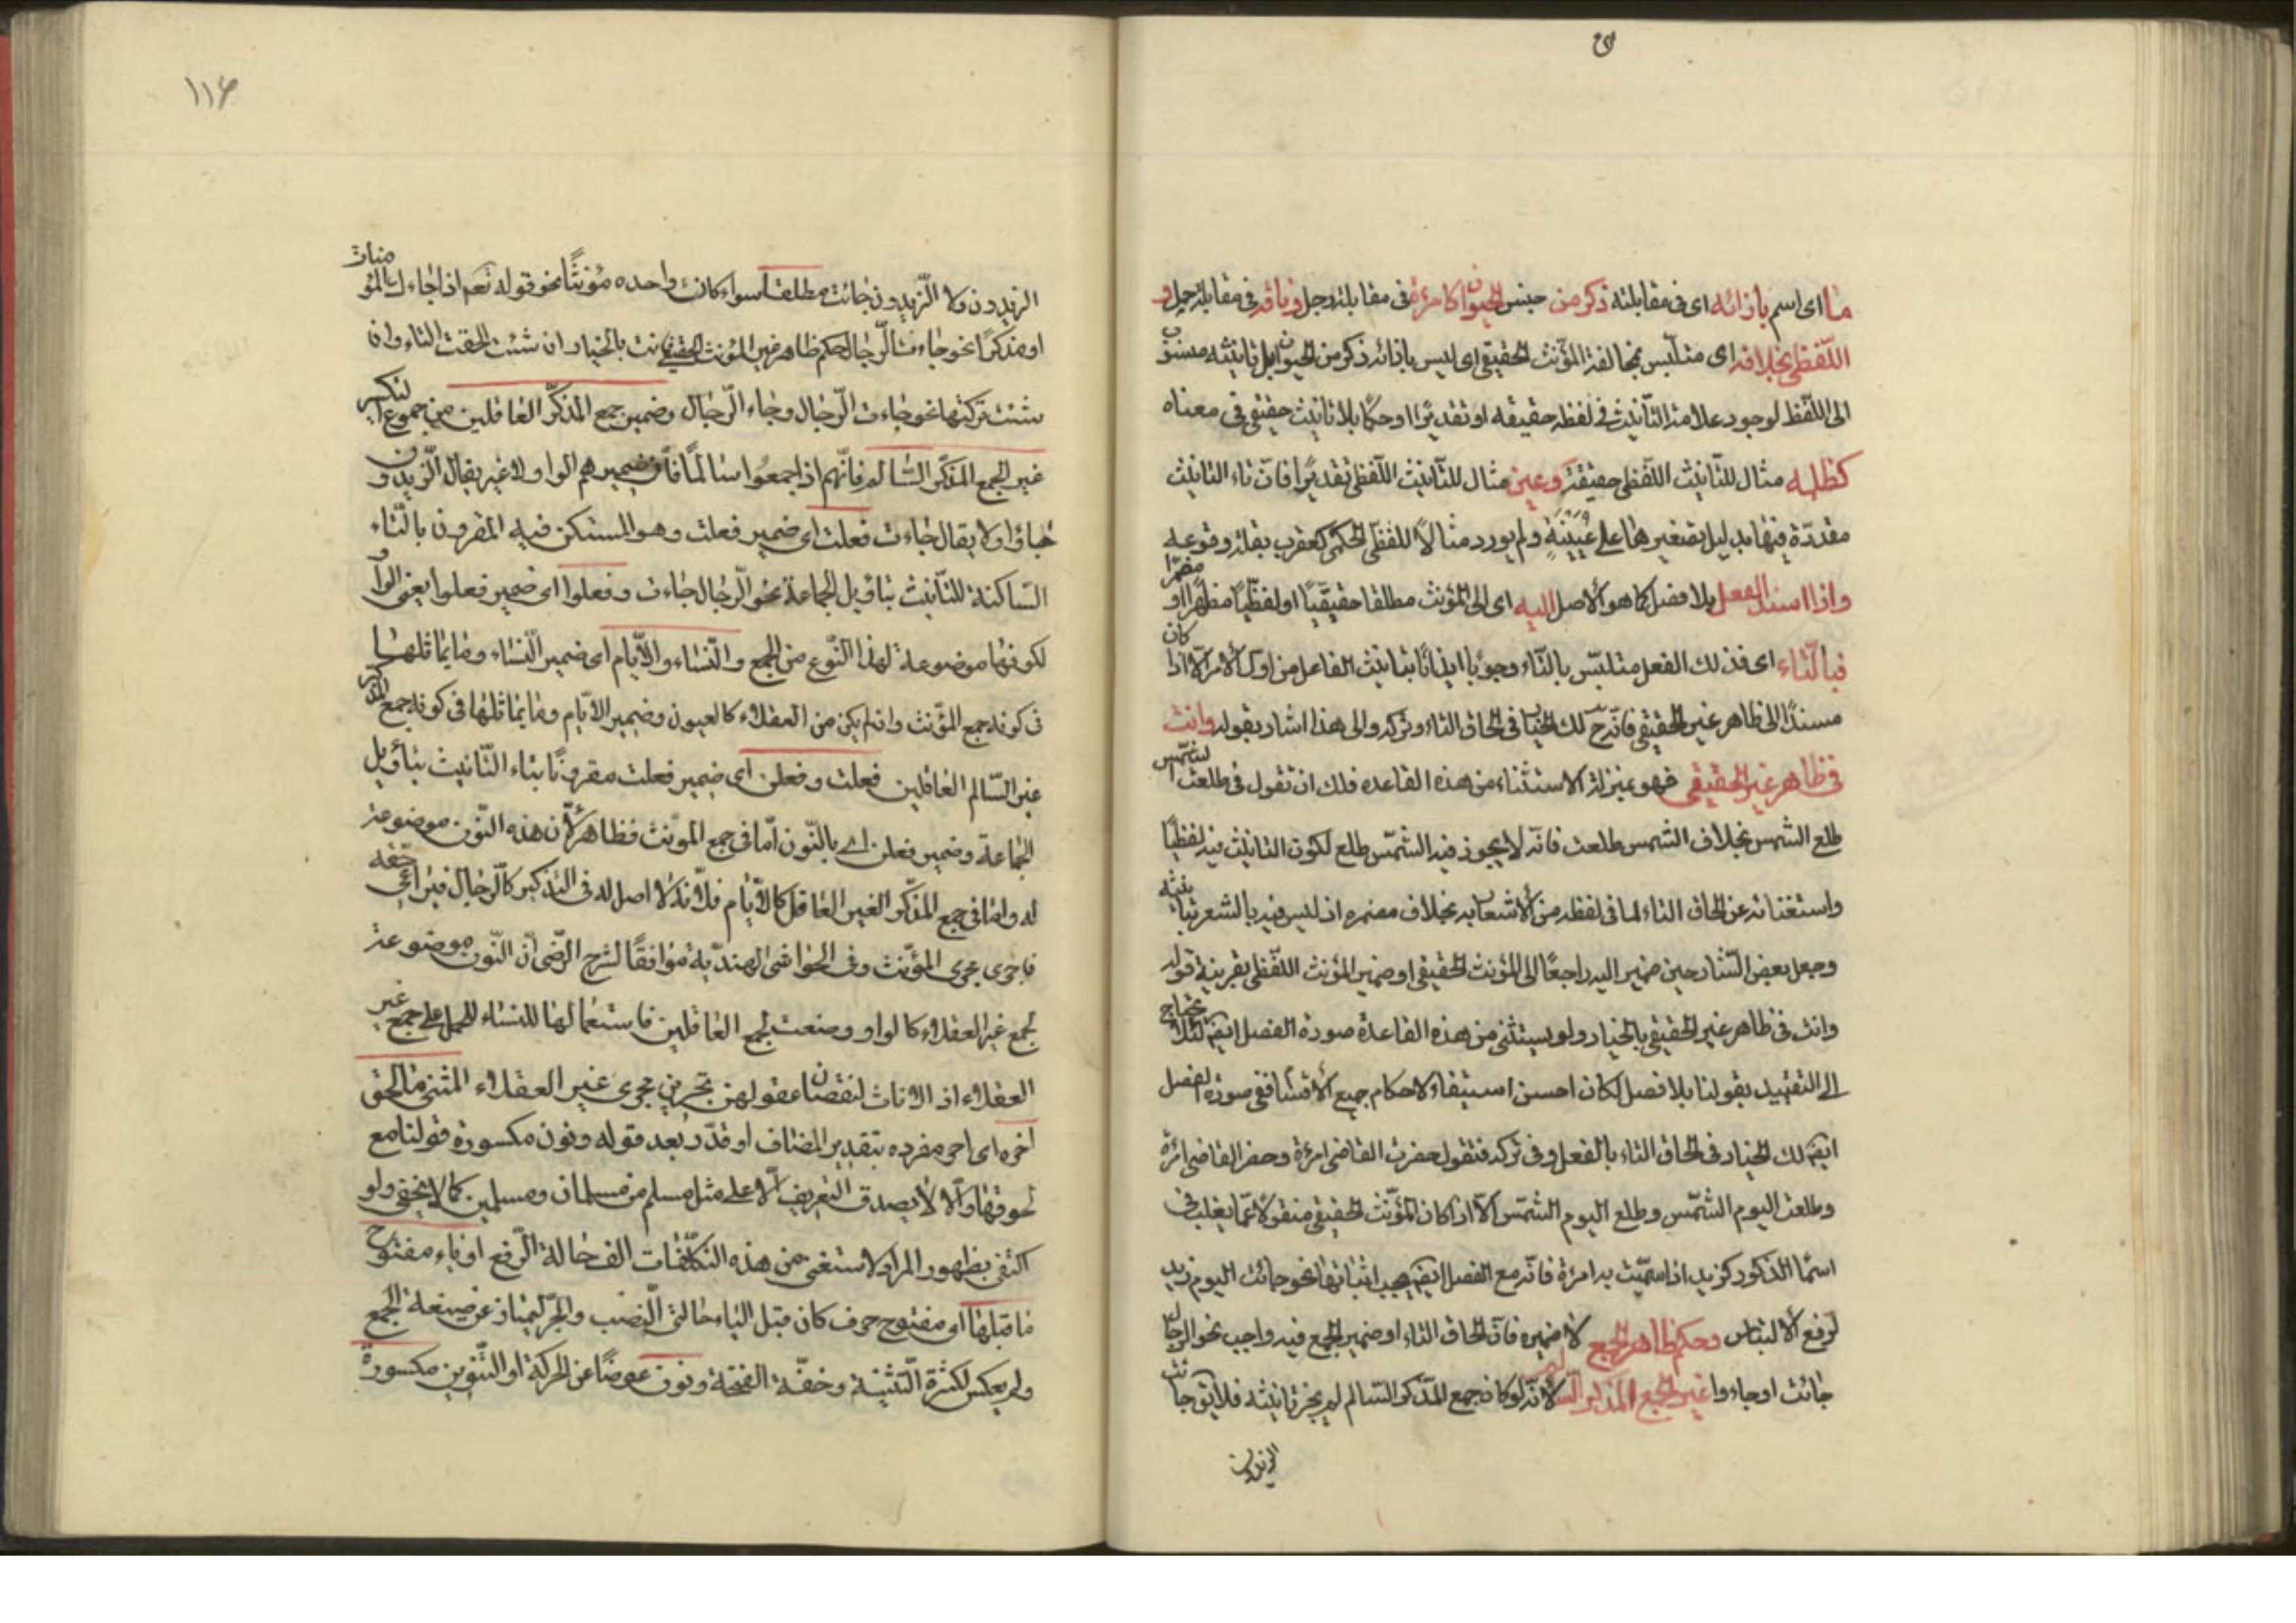 ما اى اسم بازائه اى فى مقابلته ذكر من جنس الحيوان كامرءة فى مقابلة رجل وناقة فى مقابلة جمل و
اللّفظى بخلافه اى متلبّس بمخالفة المؤنث الحقيقى اى ليس بازائه ذكر من الحيوان بل تانيثه منسوب
الى اللّفظ لوجود علامة التّانيث فى لفظه حقيقه او تقديرًا او حكمًا بلا تانيث حقيقى فى معناه
كظلمه مثال للتّانيث اللّفظى حقيقة وعين مثال للتّانيث اللّفظى تقديرًا فانّ تاء التانيث
مقدّرة فيها بدليل تصغيرها على عُيَيْنَةٍ ولم يورد مثالًا للّفظى الحكمى كعقرب لقلّة وقوعه
واذا اسند الفعل بلا فصل كما هو الاصل اليه اى الى المؤنث مطلقا حقيقيًّا او لفظيًّا مظهرًا او مضمرًا
فبالتّاء اى فذلك الفعل متلبّس بالتّاء وجوبًا ايذانًا بتانيث الفاعل من اوّل الامر الّا اذا كان
مسندًا الى ظاهر غير الحقيقى فانّه ح لك الخيار فى الحاق التاء وتركه والى هذا اشار بقوله وانت
فى ظاهر غير الحقيقى فهو بمنزلة الاستثناء من هذه القاعده فلك ان تقول فى طلعت الشمس
طلع الشمس بخلاف الشمس طلعت فانّه لا يجوز فيه الشّمس طلع لكون التانيث فيه لفظيًّا
واستغنائه عن الحاق التاء لما فى لفظه من الاشعار به بخلاف مضمره اذ ليس فيه ما يشعر بتانيثه
وجعل بعض الشّارحين ضمير اليه راجعًا الى المؤنث الحقيقى او ضمير المؤنث اللّفظى بقرينة قوله
وانت فى ظاهر غير الحقيقى بالخيار ولو يستثنى من هذه القاعدة صورة الفصل ايضا لئلا يحتاج
الى التقييد بقولنا بلا فصل لكان احسن استيفاء لاحكام جميع الاقسام ففى صورة الفصل
ايضا لك الخيار فى الحاق التاء بالفعل وفى تركه فتقول حضرت القاضى امرءة وحضر القاضى امرءة
وطلعت اليوم الشّمس وطلع اليوم الشّمس الّا اذا كان المؤنّث الحقيقى منقولًا عمّا يغلب فى
اسماء الذكور كزيد اذا سمّيت به امرءة فانّه مع الفصل ايضا يجب اثباتها نحو جائت اليوم زيد
لرفع الالتباس وحكم ظاهر الجمع لا ضميره فانّ الحاق التاء او ضمير الجمع فيه واجب نحو الرجال
جائت او جاءوا غير الجمع المذكر السالم لانّه لو كان جمع المذكر السّالم لم يجز تانيثه فلا يق جائت
الزيدون
١١٦
الزيدون ولا الزّيدون جائت مطلقا سواء كان واحده مؤنّثًا نحو قوله تعم اذا جاءك المؤمنات
او مذكرًا نحو جاءت الرّجال حكم ظاهر غير المؤنث الحقيقى فانت بالخيار ان شئت الحقت التاء وان
شئت تركتها نحو جاءت الرّجال وجاء الرّجال وضمير جمع المذكّر العاقلين من جموع التكسير
غير الجمع المذكّر السّالم فانّهم اذا جمعوا سالمًا فان ضميرهم الواو لا غير يقال الزّيدون
جاؤا ولا يقال جاءت فعلت اى ضمير فعلت وهو المستكن فيه المقرون بالتّاء
السّاكنة للتّانيث بتأويل الجماعة نحو الرّجال جاءت وفعلوا اى ضمير فعلوا يعنى الواو
لكونها موضوعة لهذا النّوع من الجمع والنّساء والايّام اى ضمير النّساء وما يماثلها
فى كونه جمع المؤنث وان لم يكن من العقلاء كالعيون وضمير الايّام وما يماثلها فى كونه جمع المذكر
غير السّالم العاقلين فعلت وفعلن اى ضمير فعلت مقرونًا بتاء التّانيث بتأويل
الجماعة وضمير فعلن اى بالنّون امّا فى جمع المؤنث فظاهر لأنّ هذه النّون موضوعة
له وامّا فى جمع المذكّر الغير العاقل كالايّام فلانّه لا اصل له فى التذكير كالرّجال فيراعى حقّه
فاجرى مجرى المؤنّث وفى الحواشى الهنديّة موافقًا لشرح الرّضى انّ النّون موضوعة
لجمع غير العقلاء كالواو وضعت لجمع العاقلين فاستعمالها للنساء للحمل على جمع غير
العقلاء اذ الاناث لنقصان عقولهن تجرين مجرى غير العقلاء المثنى ما لحق
اخره اى اخر مفرده بتقدير المضاف او قدّر بعد قوله ونون مكسورة قولنا مع
لحوقها والّا لا يصدق التعريف الّا على مثل مسلم من مسلمان ومسلمين كما لا يخفى ولو
اكتفى بظهور المراد لاستغنى من هذه التكلّفات الف حالة الرّفع او ياء مفتوح
ما قبلها اى مفتوح حرف كان قبل الياء حالتى النّصب والجرّ ليمتاز عن صيغة الجمع
ولم يعكس لكثرة التّثنية وخفّة الفتحة ونون عوضًا عن الحركة او التّنوين مكسورة